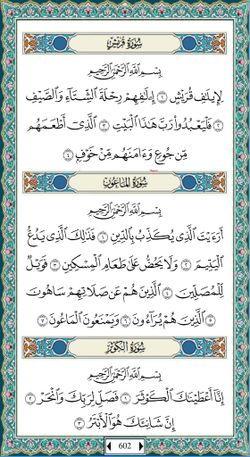 سُورَةُ قُرَيْشٍ
بِسْمِ ٱللَّهِ ٱلرَّحْمَٰنِ ٱلرَّحِيمِ
لِإِيلَٰفِ قُرَيْشٍ ١ إِۦلَٰفِهِمْ رِحْلَةَ ٱلشِّتَآءِ وَٱلصَّيْفِ
٢ فَلْيَعْبُدُوا۟ رَبَّ هَٰذَا ٱلْبَيْتِ ٣ ٱلَّذِىٓ أَطْعَمَهُم
مِّن جُوعٍ وَءَامَنَهُم مِّنْ خَوْفٍۭ ٤
سُورَةُ المَاعُونِ
بِسْمِ ٱللَّهِ ٱلرَّحْمَٰنِ ٱلرَّحِيمِ
أَرَءَيْتَ ٱلَّذِى يُكَذِّبُ بِٱلدِّينِ ١ فَذَٰلِكَ ٱلَّذِى يَدُعُّ
ٱلْيَتِيمَ ٢ وَلَا يَحُضُّ عَلَىٰ طَعَامِ ٱلْمِسْكِينِ ٣ فَوَيْلٌ
لِّلْمُصَلِّينَ ٤ ٱلَّذِينَ هُمْ عَن صَلَاتِهِمْ سَاهُونَ
٥ ٱلَّذِينَ هُمْ يُرَآءُونَ ٦ وَيَمْنَعُونَ ٱلْمَاعُونَ ٧
سُورَةُ الكَوْثَرِ
بِسْمِ ٱللَّهِ ٱلرَّحْمَٰنِ ٱلرَّحِيمِ
إِنَّآ أَعْطَيْنَٰكَ ٱلْكَوْثَرَ ١ فَصَلِّ لِرَبِّكَ وَٱنْحَرْ ٢
إِنَّ شَانِئَكَ هُوَ ٱلْأَبْتَرُ ٣
602